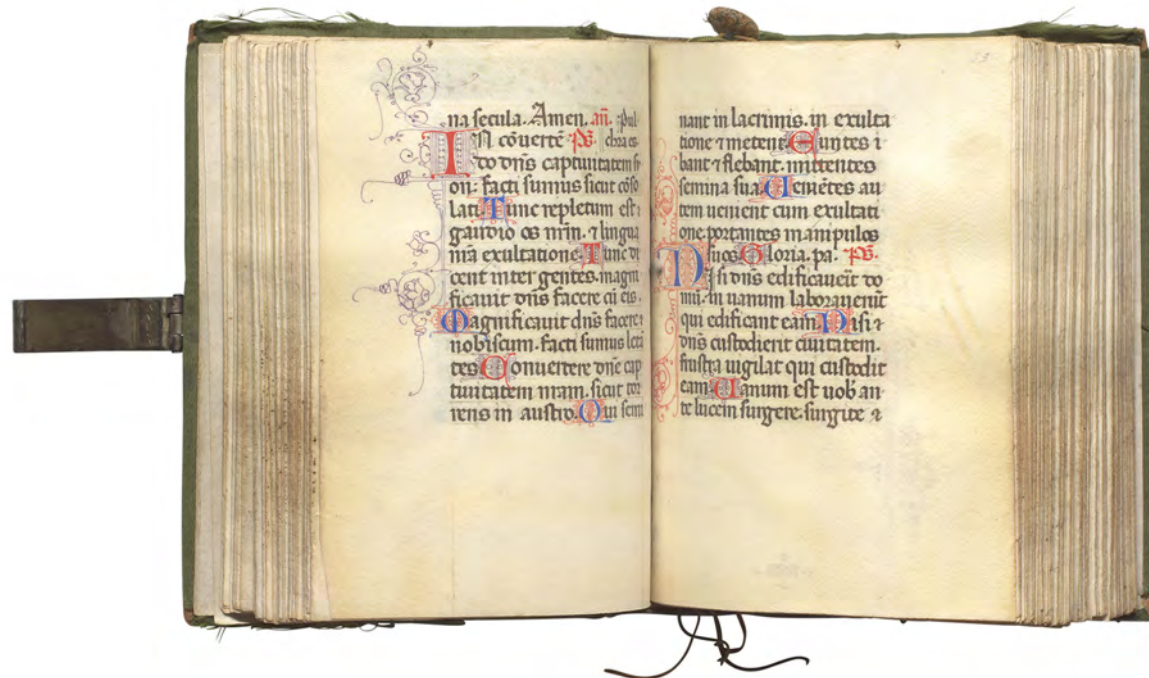 na secula. Amen. añ. Pul
IN cõuertẽ ps. chra es
do dñs captiuitatem si
on: facti sumus sicut cõso
lati. Tunc repletum est
gaudio os nr̃m. ⁊ lingua
nr̃a exultatione. Tunc di
cent inter gentes. magni
ficauit dñs facere cũ eis.
Magnificauit dñs facere
nobiscum. facti sumus letã
tes. Conuertere dñe cap
tiuitatem nr̃am. sicut tor
rens in austro. Qui semi
nant in lacrimis. in exulta
tione ⁊ metent. Euntes i
bant ⁊ flebant. mittentes
semina sua. Ueniẽtes au
tem uenient cum exultati
one. portantes manipulos
suos. Gloria. pa. ps.
Nisi dñs edificauerit do
mũ. in uanum laborauerũt
qui edificant eam. Nisi
dñs custodierit ciuitatem.
frustra uigilat qui custodit
eam. Uanum est uob an
te lucem surgere. surgite